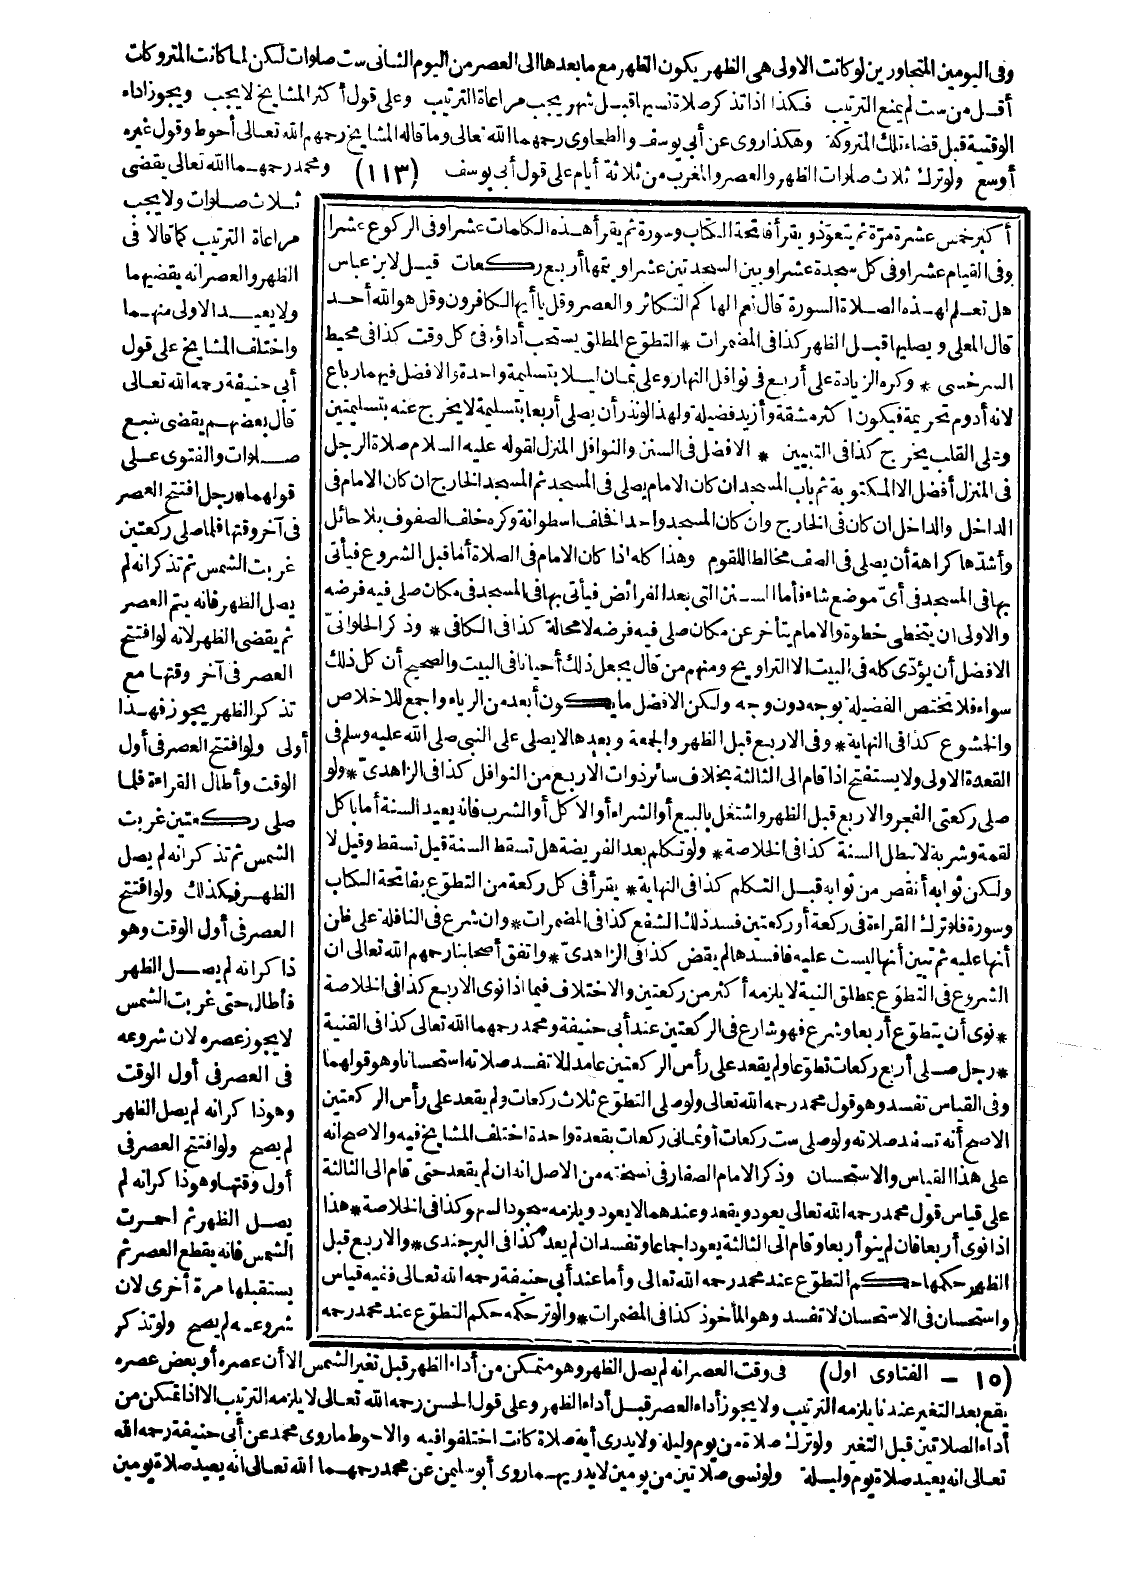 وفى اليومين المتجاورين لو كانت الاولى هى الظهر يكون الظهر مع ما بعدها الى العصر من اليوم الثانى ست صلوات لكن لما كانت المتروكات
أقل من ست لم يمنع الترتيب فكذا اذا تذكر صلاة نسيها قبل شهر يجب مراعاة الترتيب وعلى قول أكثر المشايخ لا يجب ويجوز اداء
الوقتية قبل قضاء تلك المتروكة وهكذا روى عن أبى يوسف والطحاوى رحمهما الله تعالى وما قاله المشايخ رحمهم الله تعالى أحوط وقول غيره
أوسع ولو ترك ثلاث صلوات الظهر والعصر والمغرب من ثلاثة أيام على قول أبى يوسف (١١٣) ومحمد رحمهما الله تعالى يقضى
ثلاث صلوات ولا يجب
مراعاة الترتيب كما قالا فى
الظهر والعصر انه يقضيهما
ولا يعيد الاولى منهما
واختلف المشايخ على قول
أبى حنيفة رحمه الله تعالى
قال بعضهم يقضى سبع
صلوات والفتوى على
قولهما * رجل افتتح العصر
فى آخر وقتها فلما صلى ركعتين
غربت الشمس ثم تذكر انه لم
يصل الظهر فانه يتم العصر
ثم يقضى الظهر لانه لو افتتح
العصر فى آخر وقتها مع
تذكر الظهر يجوز فهذا
أولى ولو افتتح العصر فى أول
الوقت وأطال القراءة فلما
صلى ركعتين غربت
الشمس ثم تذكر انه لم يصل
الظهر فكذلك ولو افتتح
العصر فى أول الوقت وهو
ذاكر انه لم يصل الظهر
فأطال حتى غربت الشمس
لا يجوز عصره لان شروعه
فى العصر فى أول الوقت
وهو ذاكر انه لم يصل الظهر
لم يصح ولو افتتح العصر فى
أول وقتها وهو ذاكر انه لم
يصل الظهر ثم احمرت
الشمس فانه يقطع العصر ثم
يستقبلها مرة أخرى لان
شروعه لم يصح ولو تذكر
أكبر خمس عشرة مرة ثم يتعوذ ويقرأ فاتحة الكتاب وسورة ثم يقرأ هذه الكلمات عشرا وفى الركوع عشرا
وفى القيام عشرا وفى كل سجدة عشرا وبين السجدتين عشرا ويتمها أربع ركعات قيل لابن عباس
هل تعلم لهذه الصلاة السورة قال نعم الهاكم التكاثر والعصر وقل يا أيها الكافرون وقل هو الله أحد
قال المعلى ويصليها قبل الظهر كذا فى المضمرات * التطوع المطلق يستحب أداؤه فى كل وقت كذا فى محيط
السرخسى * وكره الزيادة على أربع فى نوافل النهار وعلى ثمان ليلا بتسليمة واحدة والافضل فيهما رباع
لانه أدوم تحريمة فيكون اكثر مشقة وأزيد فضيلة ولهذا لو نذر أن يصلى أربعا بتسليمة لا يخرج عنه بتسليمتين
وعلى القلب يخرج كذا فى التبيين * الافضل فى السنن والنوافل المنزل لقوله عليه السلام صلاة الرجل
فى المنزل أفضل الا المكتوبة ثم باب المسجد ان كان الامام يصلى فى المسجد ثم المسجد الخارج ان كان الامام فى
الداخل والداخل ان كان فى الخارج وان كان المسجد واحدا فخلف اسطوانة وكره خلف الصفوف بلا حائل
وأشدها كراهة أن يصلى فى الصف مخالطا للقوم وهذا كله اذا كان الامام فى الصلاة أما قبل الشروع فيأتى
بها فى المسجد فى أى موضع شاء فأما السنن التى بعد الفرائض فيأتى بها فى المسجد فى مكان صلى فيه فرضه
والاولى ان يتخطى خطوة والامام يتأخر عن مكان صلى فيه فرضه لا محالة كذا فى الكافى * وذكر الحلوانى
الافضل أن يؤدى كله فى البيت الا التراويح ومنهم من قال يجعل ذلك أحيانا فى البيت والصحيح أن كل ذلك
سواء فلا تختص الفضيلة بوجه دون وجه ولكن الافضل ما يكون أبعد من الرياء واجمع للاخلاص
والخشوع كذا فى النهاية * وفى الاربع قبل الظهر والجمعة وبعدها لا يصلى على النبى صلى الله عليه وسلم فى
القعدة الاولى ولا يستفتح اذا قام الى الثالثة بخلاف سائر ذوات الاربع من النوافل كذا فى الزاهدى * ولو
صلى ركعتى الفجر والاربع قبل الظهر واشتغل بالبيع أو الشراء أو الاكل أو الشرب فانه يعيد السنة أما باكل
لقمة وشربة لا تبطل السنة كذا فى الخلاصة * ولو تكلم بعد الفريضة هل تسقط السنة قيل تسقط وقيل لا
ولكن ثوابه أنقص من ثوابه قبل التكلم كذا فى النهاية * يقرأ فى كل ركعة من التطوع بفاتحة الكتاب
وسورة فلو ترك القراءة فى ركعة أو ركعتين فسد ذلك الشفع كذا فى المضمرات * وان شرع فى النافلة على ظن
أنها عليه ثم تبين أنها ليست عليه فافسدها لم يقض كذا فى الزاهدى * واتفق أصحابنا رحمهم الله تعالى ان
الشروع فى التطوع بمطلق النية لا يلزمه أكثر من ركعتين والاختلاف فيما اذا نوى الاربع كذا فى الخلاصة
* نوى أن يتطوع أربعا وشرع فهو شارع فى الركعتين عند أبى حنيفة ومحمد رحمهما الله تعالى كذا فى القنية
* رجل صلى أربع ركعات تطوعا ولم يقعد على رأس الركعتين عامدا لا تفسد صلاته استحسانا وهو قولهما
وفى القياس تفسد وهو قول محمد رحمه الله تعالى ولو صلى التطوع ثلاث ركعات ولم يقعد على رأس الركعتين
الاصح أنه تفسد صلاته ولو صلى ست ركعات أو ثمانى ركعات بقعدة واحدة اختلف المشايخ فيه والاصح انه
على هذا القياس والاستحسان وذكر الامام الصفار فى نسخته من الاصل انه ان لم يقعد حتى قام الى الثالثة
على قياس قول محمد رحمه الله تعالى يعود ويقعد وعندهما لا يعود ويلزمه سجود السهو كذا فى الخلاصة * هذا
اذا نوى أربعا فان لم ينو أربعا وقام الى الثالثة يعود اجماعا وتفسد ان لم يعد كذا فى البرجندى * والاربع قبل
الظهر حكمها حكم التطوع عند محمد رحمه الله تعالى وأما عند أبى حنيفة رحمه الله تعالى ففيه قياس
واستحسان فى الاستحسان لا تفسد وهو المأخوذ كذا فى المضمرات * والوتر حكمه حكم التطوع عند محمد رحمه
(١٥ - الفتاوى اول) فى وقت العصر انه لم يصل الظهر وهو متمكن من أداء الظهر قبل تغير الشمس الا أن عصره أو بعض عصره
يقع بعد التغير عندنا يلزمه الترتيب ولا يجوز أداء العصر قبل أداء الظهر وعلى قول الحسن رحمه الله تعالى لا يلزمه الترتيب الا اذا تمكن من
أداء الصلاتين قبل التغير ولو ترك صلاة من يوم وليلة ولا يدرى أية صلاة كانت اختلفوا فيه والاحوط ما روى محمد عن أبى حنيفة رحمه الله
تعالى انه يعيد صلاة يوم وليلة ولو نسى صلاتين من يومين لا يدريهما روى أبو سليمن عن محمد رحمهما الله تعالى انه يعيد صلاة يومين